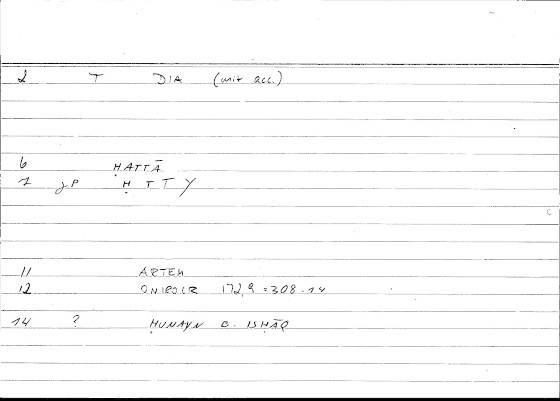 2 T DIA (mit acc.)
6 ḤATTĀ
7 JP Ḥ T T Y
11 ARTEM
12 ONIROCR 172,9 = 308.14
14 ? ḤUNAYN B. ISḤĀQ